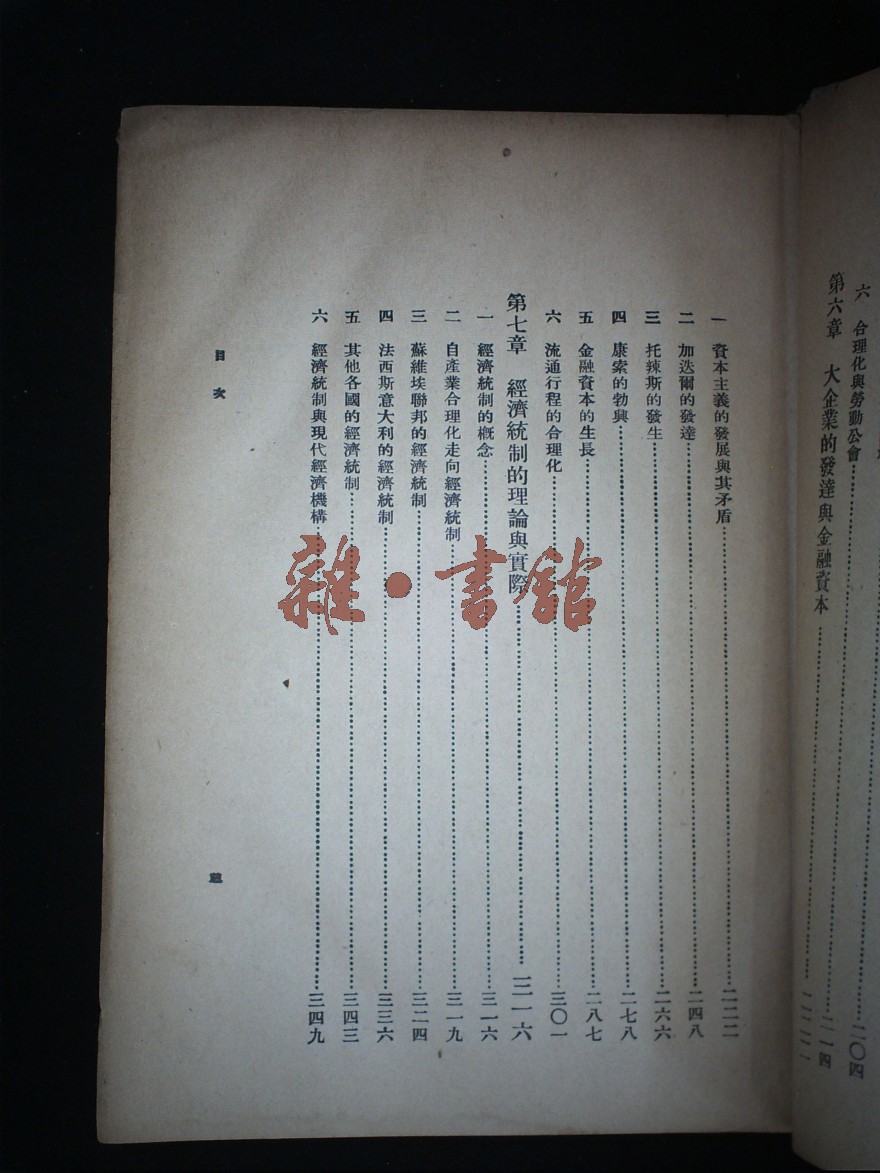 二〇四
六 合理化與勞動公會……二一四
第六章 大企業的發達與金融資本……
一 資本主義的發展與其矛盾……二二二
二 加迭爾的發達……二四八
三 托辣斯的發生……二六六
四 康索的勃興……二七八
五 金融資本的生長……二八七
六 流通行程的合理化……三〇一
第七章 經濟統制的理論與實際……三一六
一 經濟統制的概念……三一六
二 自產業合理化走向經濟統制……三一九
三 蘇維埃聯邦的經濟統制……三二四
四 法西斯意大利的經濟統制……三三六
五 其他各國的經濟統制……三四三
六 經濟統制與現代經濟機構……三四九
目次
雜·書館